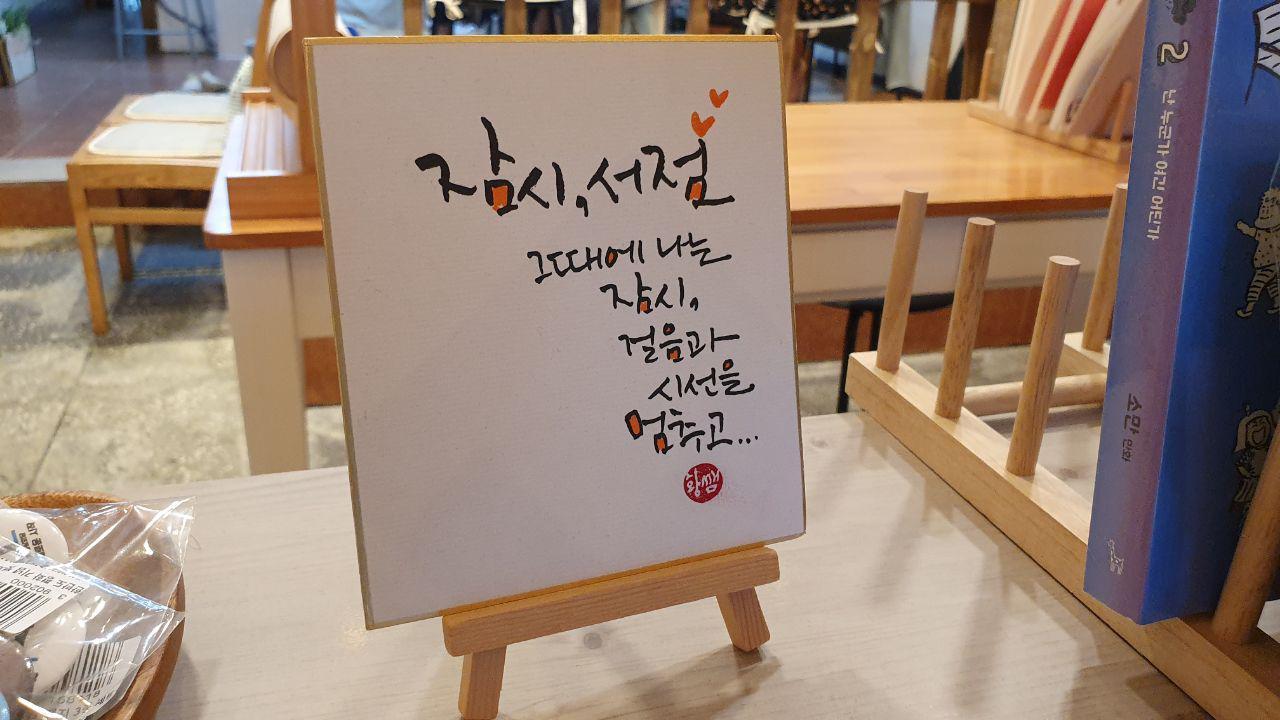 잠시, 서점
그때에 나는
잠시,
걸음과
시선을
멈추고...
황쌤
2
난 누군가 여긴 어딘가
소만 만화